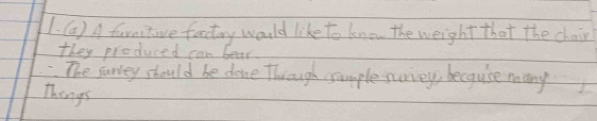 1. (a) A furnitive factory would like to know the weight that the chair
they produced can bear.
∴ The survey should be done Through sample survey, becquise many
Thengs